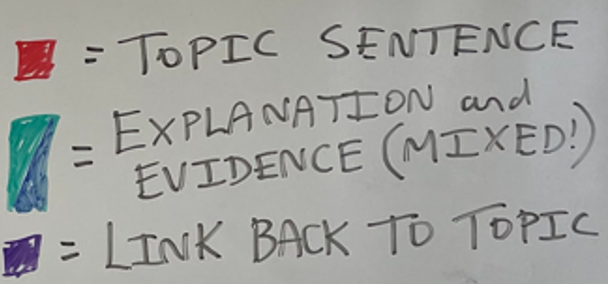 = TOPIC SENTENCE
= EXPLANATION and
EVIDENCE (MIXED!)
= LINK BACK TO TOPIC